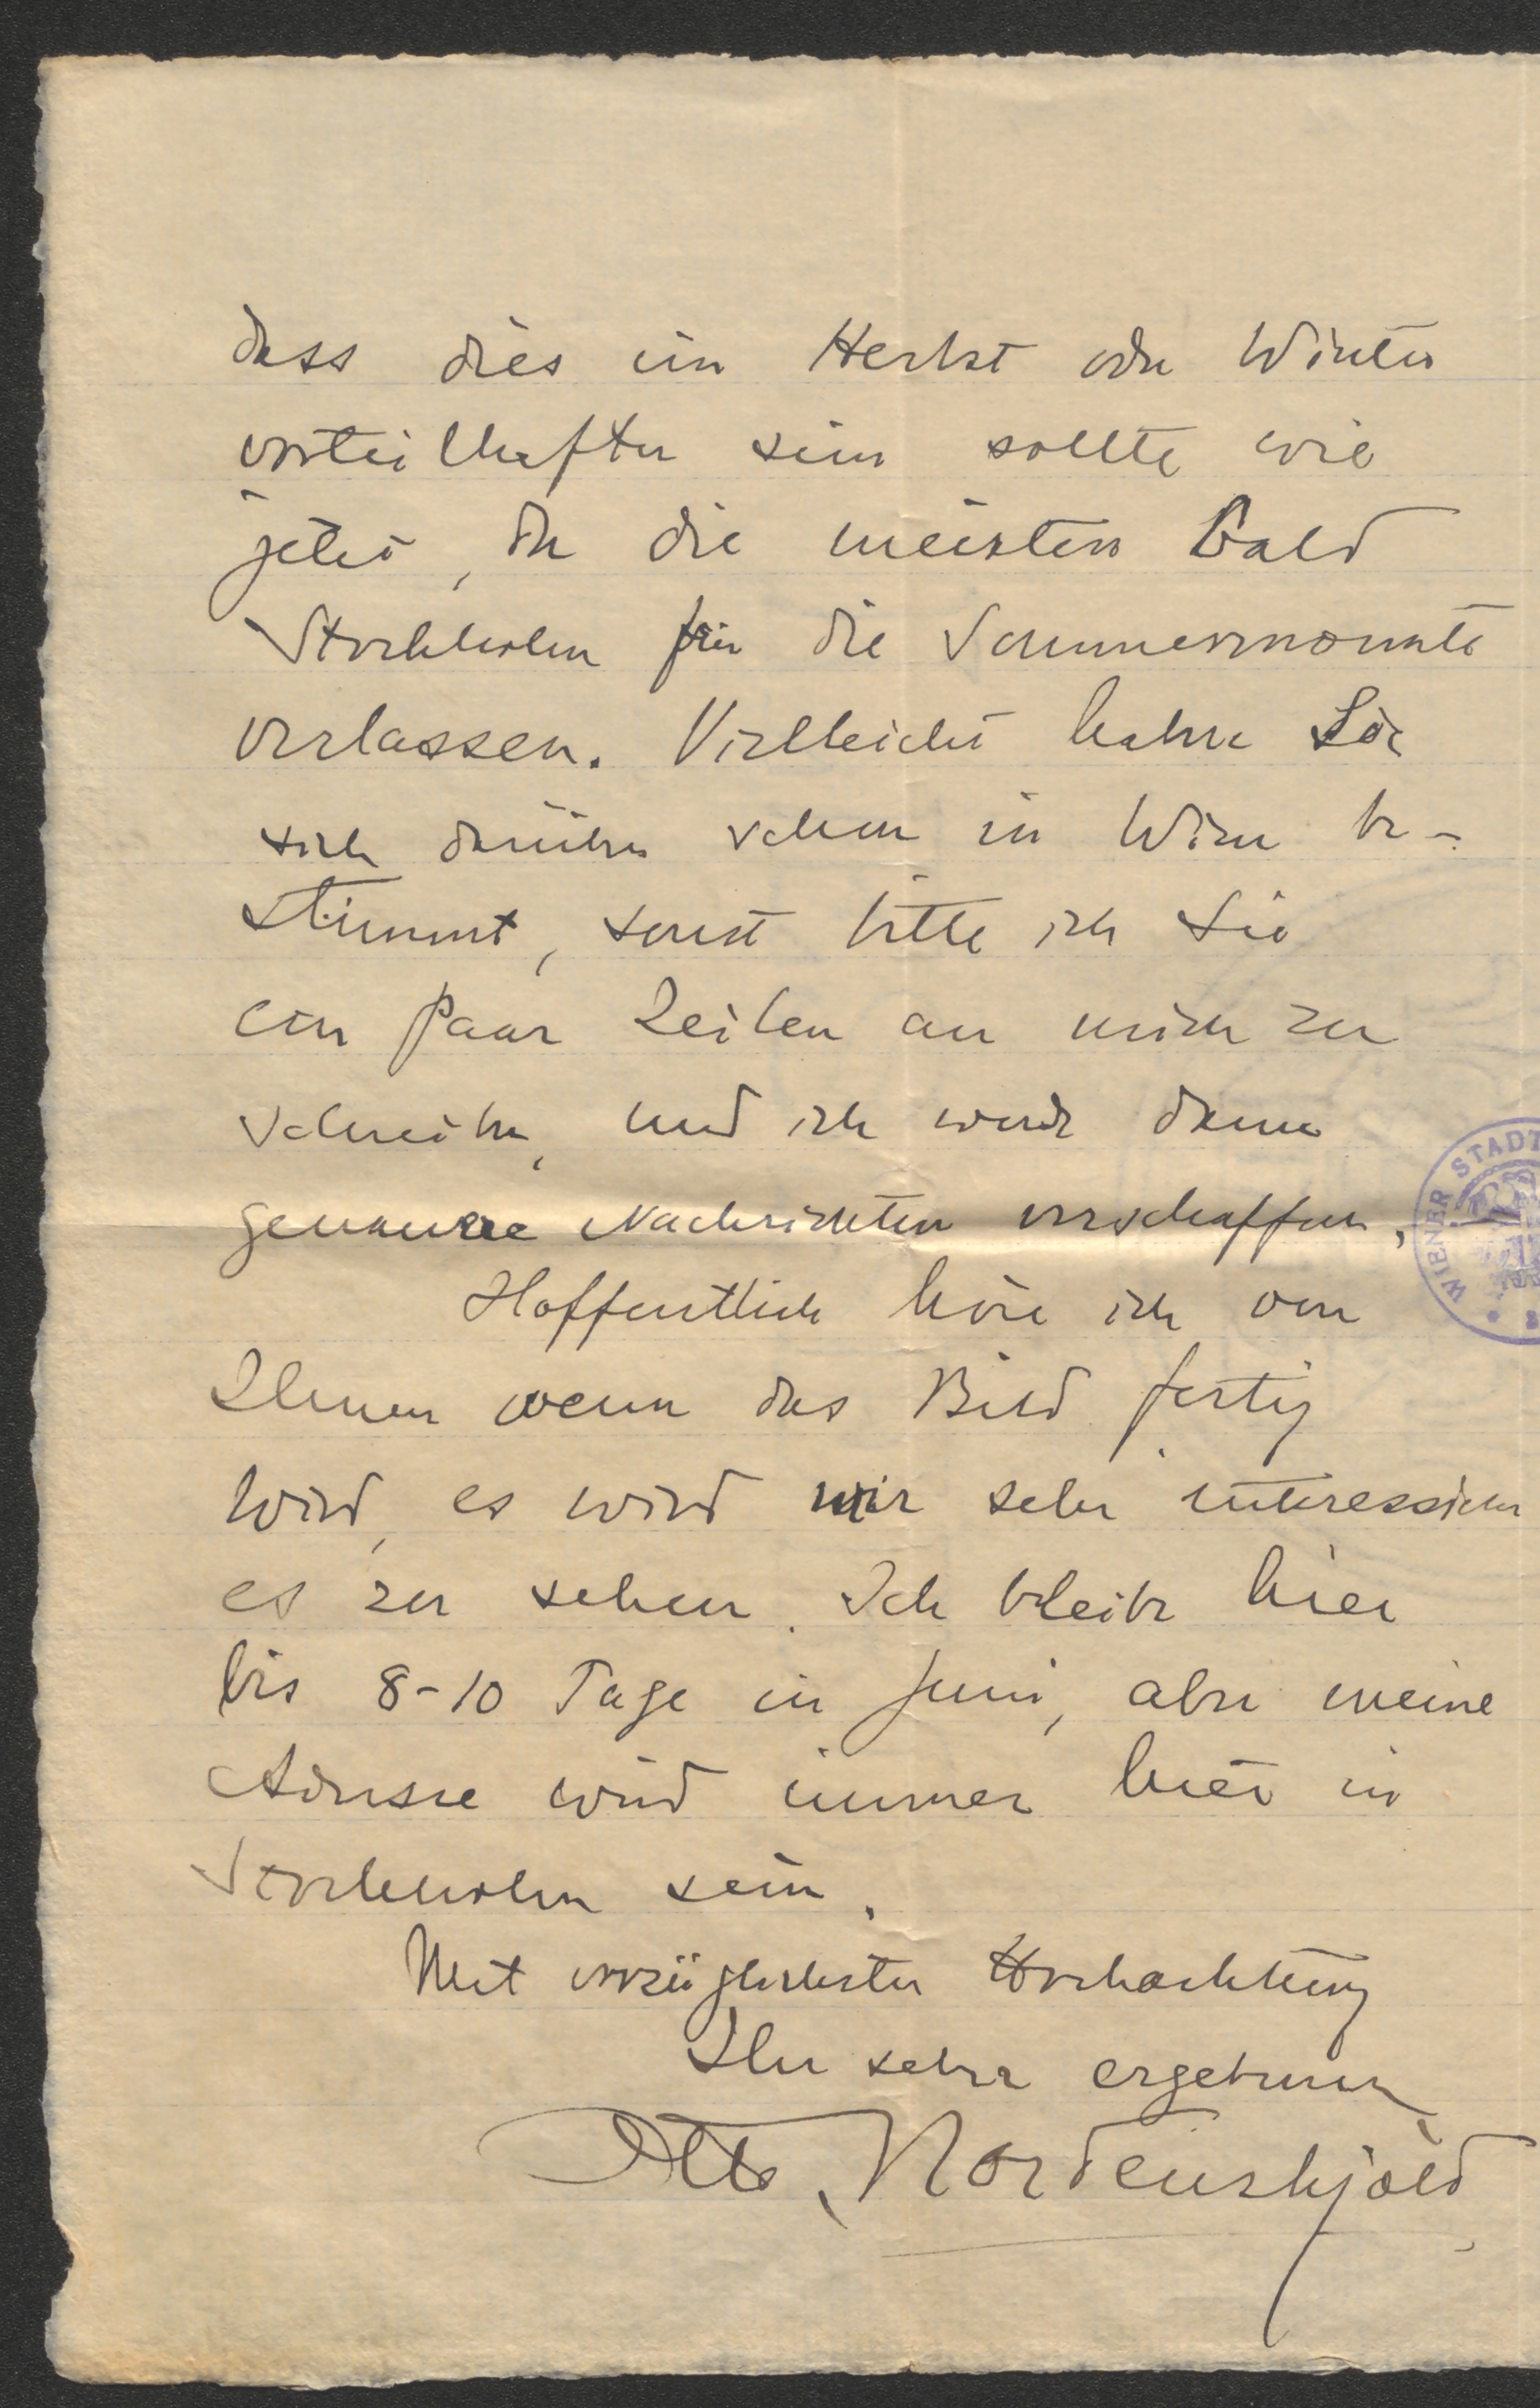 dass dies im Herbst oder Winter
vorteilhafter sein sollte wie
jetzt, da die meisten bald
Stockholm für die Sommermonate
verlassen. Vielleicht haben Sie
sich darüber schon in Wien be-
stimmt, sonst bitte ich Sie
ein Paar Zeilen an mich zu
schreiben, und ich werde dann
genauere Nachrichten verschaffen.
Hoffentlich höre ich von
Ihnen wenn das Bild fertig
wird, es wird mir sehr interessieren
es zu sehen. Ich bleibe hier
bis 8-10 Tage in Juni, aber meine
Adresse wird immer hier in
Stockholm sein.
Mit vorzüglichster Hochachtung
Ihr sehr ergebener
Otto Nordenskjöld
WIENER STADT